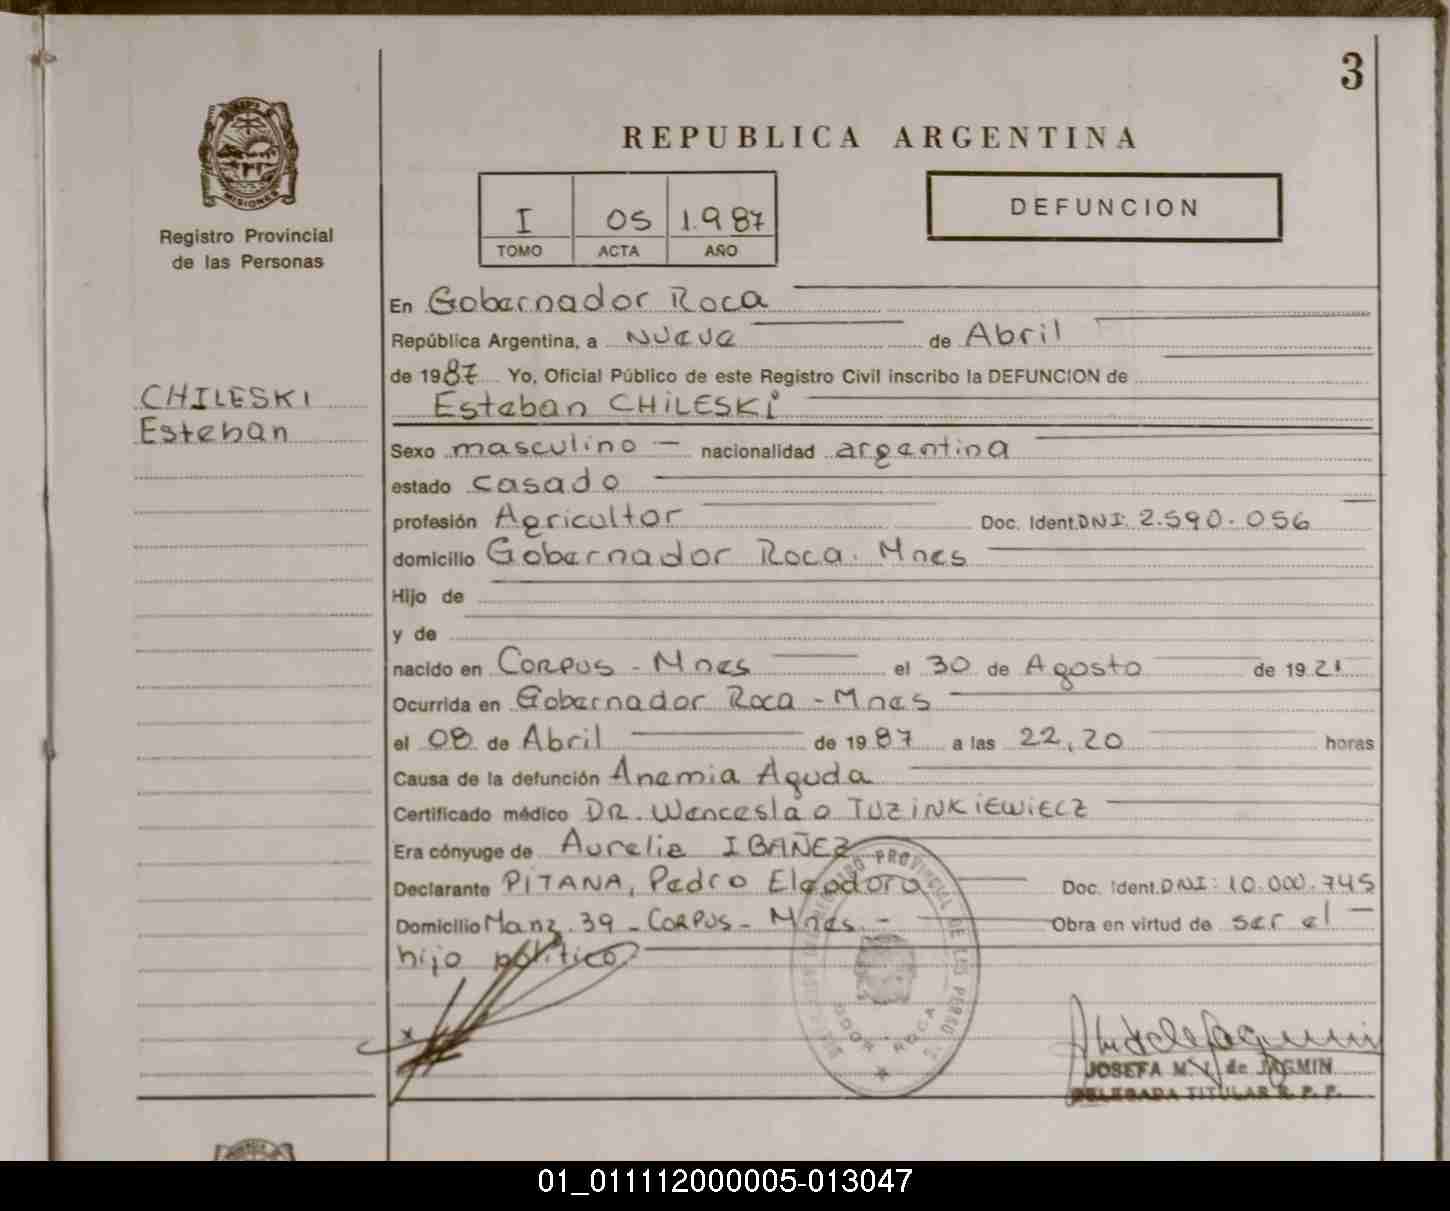 3
REPUBLICA ARGENTINA
MISIONES
Registro Provincial
de las Personas
I 05 1.987
TOMO ACTA AÑO
DEFUNCION
CHILESKI
Esteban
En Gobernador Roca
República Argentina, a Nueve de Abril
de 1987 Yo, Oficial Público de este Registro Civil inscribo la DEFUNCION de
Esteban CHILESKI
Sexo masculino — nacionalidad argentina
estado casado
profesión Agricultor Doc. Ident. DNI. 2.590.056
domicilio Gobernador Roca. Mnes
Hijo de
y de
nacido en Corpus - Mnes el 30 de Agosto de 1921
Ocurrida en Gobernador Roca - Mnes
el 08 de Abril de 1987 a las 22,20 horas
Causa de la defunción Anemia Aguda
Certificado médico DR. Wenceslao TUZINKIEWIECZ
Era cónyuge de Aurelia IBAÑEZ
Declarante PITANA, Pedro Eleodoro Doc. Ident. DNI: 10.000.745
Domicilio Manz. 39 - Corpus - Mnes. - Obra en virtud de ser el —
hijo político
REGISTRO PROVINCIAL DE LAS PERSO
GDOR ROCA
JOSEFA M. de JAGMIN
DELEGADA TITULAR R. P. P.
01_011112000005-013047